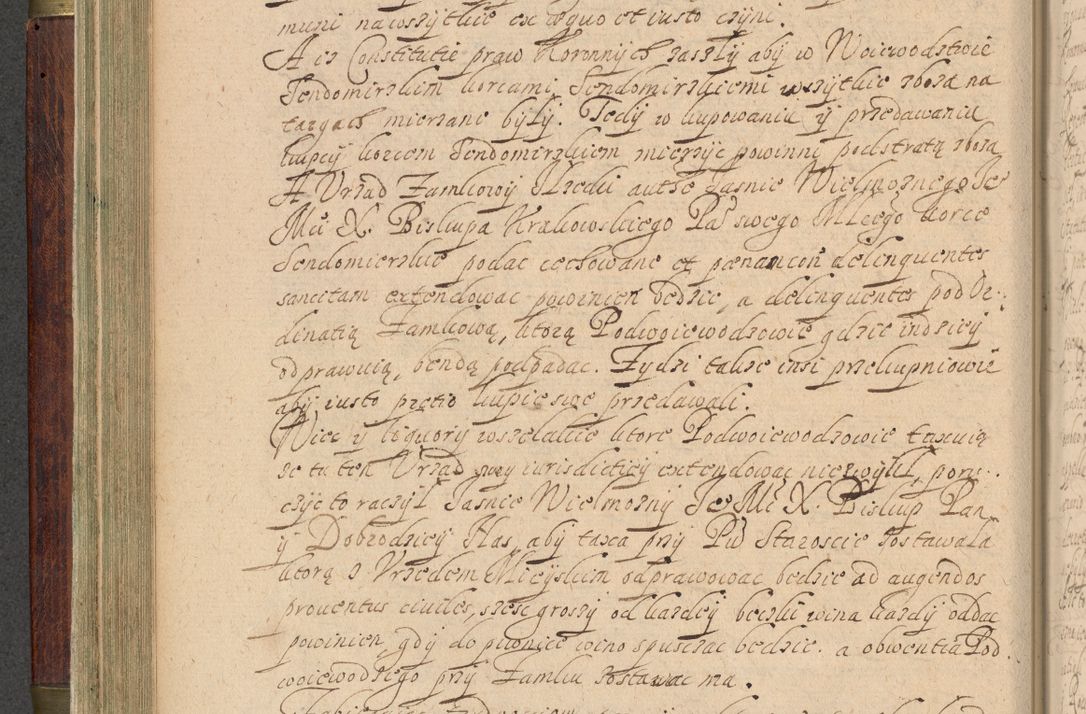 muni na wszytkie ex æquo et iusto czyni.
A iz Constitutie praw Koronnych zaszły aby w Woiewodstwie
Sendomirskim korcami Sendomirskiemi wszytkie zboza na
targach mierzane były. Tedy w kupowaniu y przedawaniu
kupcy korcem Sendomirskiem mierzyc powinni pod stratą zboza
A Vrząd Zamkowy Kielci autse Jasnie Wielmoznego Je
Mci X. Biskupa Krakowskiego Pa swego Młceº korce
Sendomierskie podac cechowane et pænam con delinquentes
sancitam extendowac powinien bedzie, a delinquentes pod Or:
dinatią Zamkową, ktorą Podwoiewodzowie gdzie indziey
odprawuią, bendą podpadac. Zydzi takze insi przekupniowie
aby iusto prętio kupie swe przedawali.
Wiec y liquory wszelakie ktore Podwoiewodzowie taxuią
ze tu ten Vrząd swy iurisdictiey extendowac niezwykł, poru:
czyc to raczył Jasnie Wielmozny Je Mc X. Biskup Pan
y Dobrodziey Nas, aby taxa przy Pu Staroscie zostawała
ktorą z Vrzedem Mieyskim odprawowac bedzie ad augendos
prouentus ciuiles, szesc groszy od kazdey beczki wina kazdy oddac
powinien, gdy do piwnice wino spuszczac bedzie. a obwentia Pod
woiewodzego przy Zamku zostawac ma.